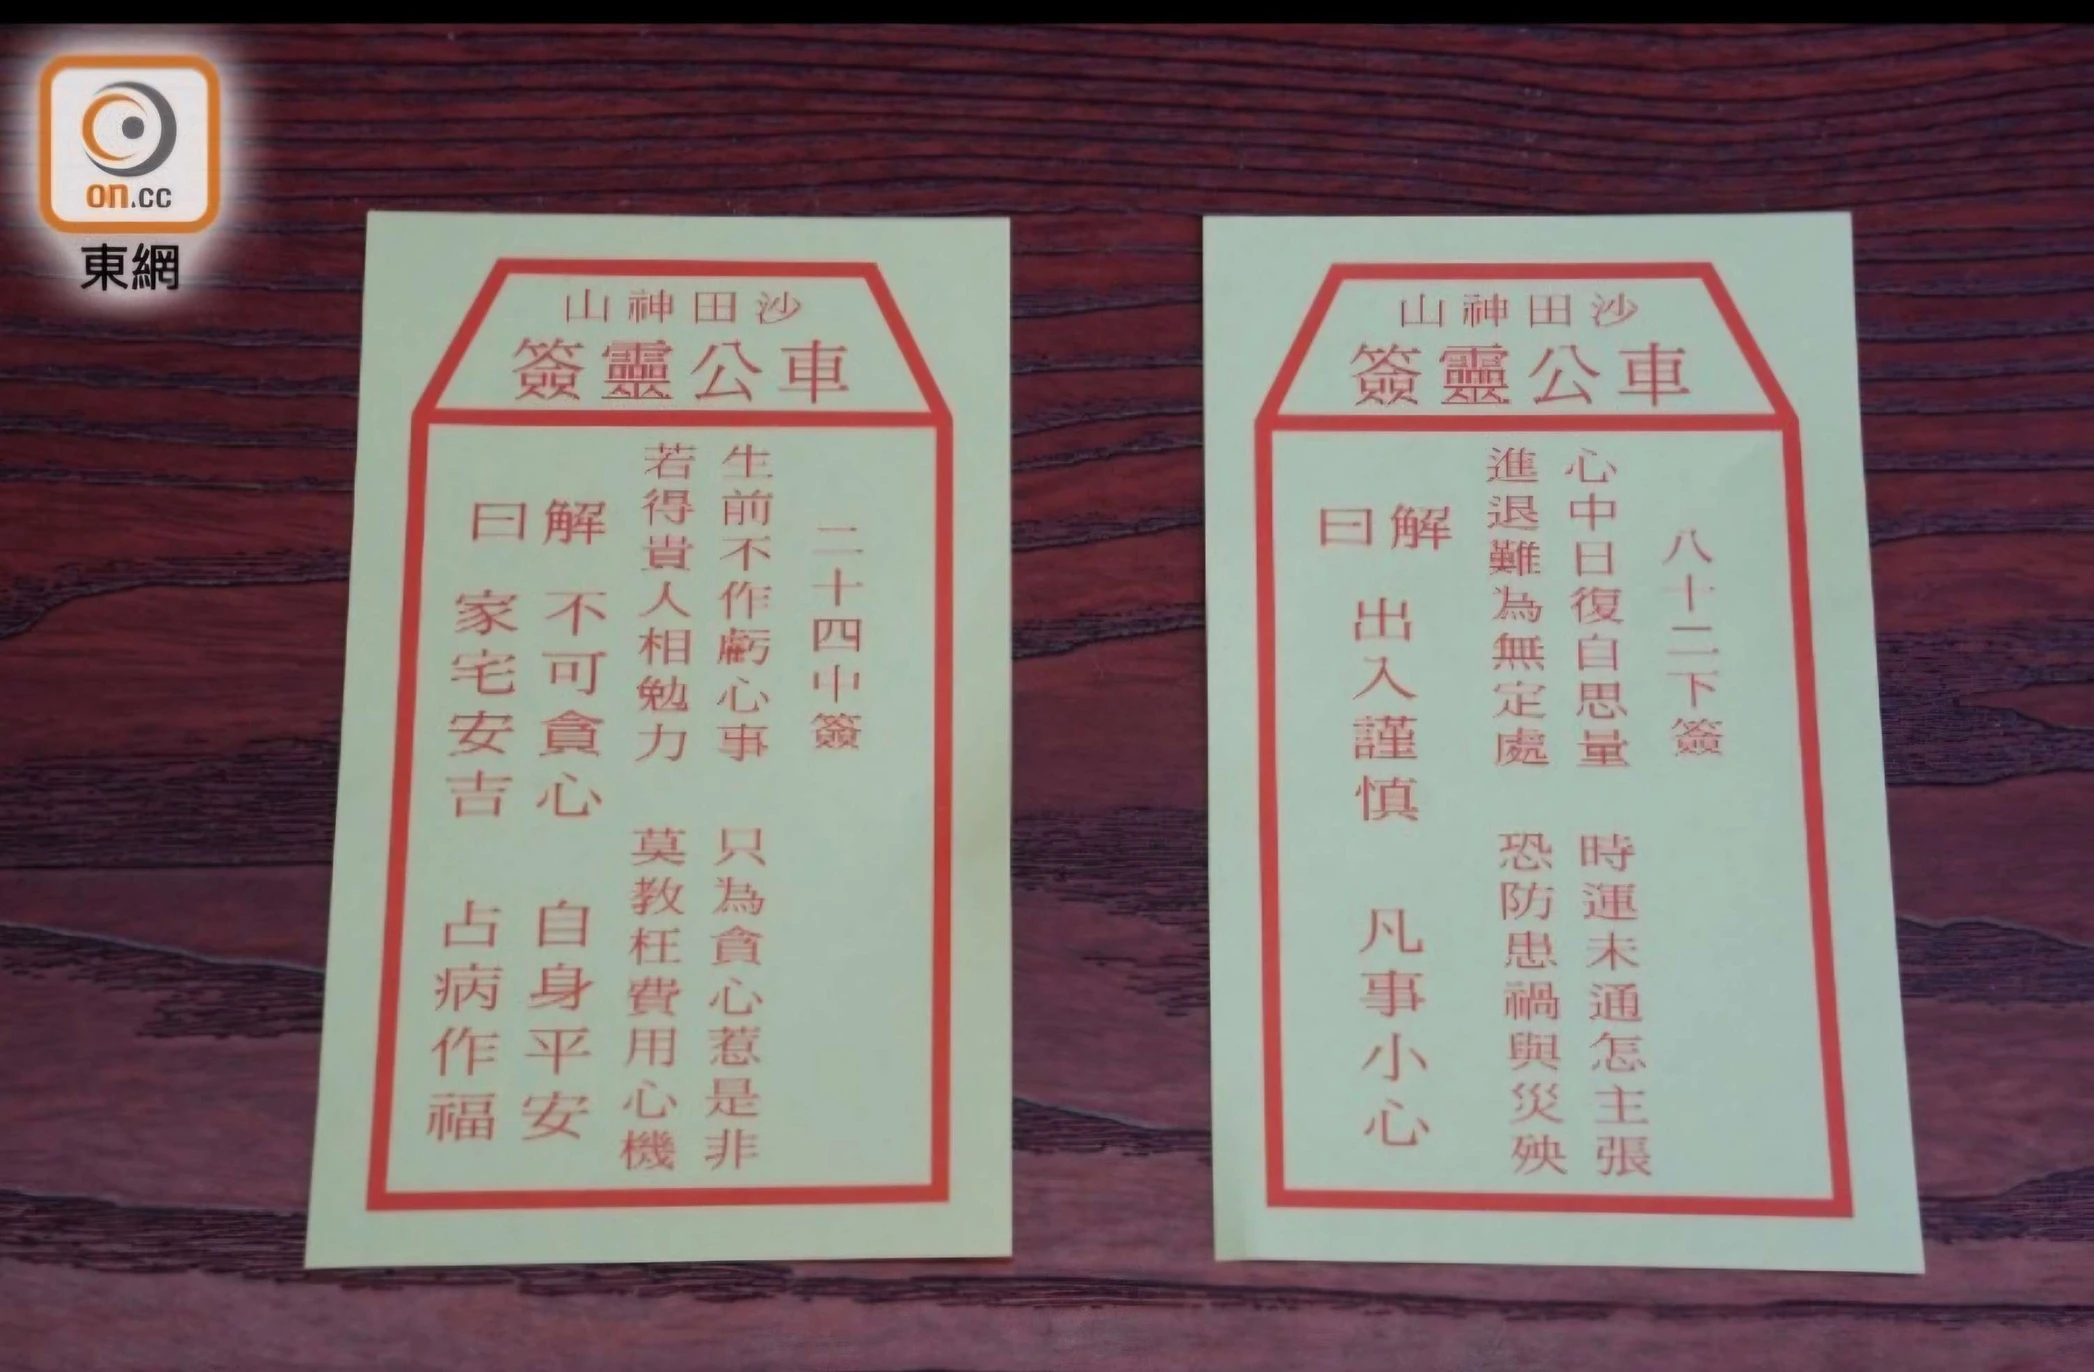 on.cc
東網
沙田神山
車公靈簽
二十四中簽
生前不作虧心事　只為貪心惹是非
若得貴人相勉力　莫教枉費用心機
解曰
不可貪心　自身平安
家宅安吉　占病作福
沙田神山
車公靈簽
八十二下簽
心中日復自思量　時運未通怎主張
進退難為無定處　恐防患禍與災殃
解曰
出入謹慎　凡事小心